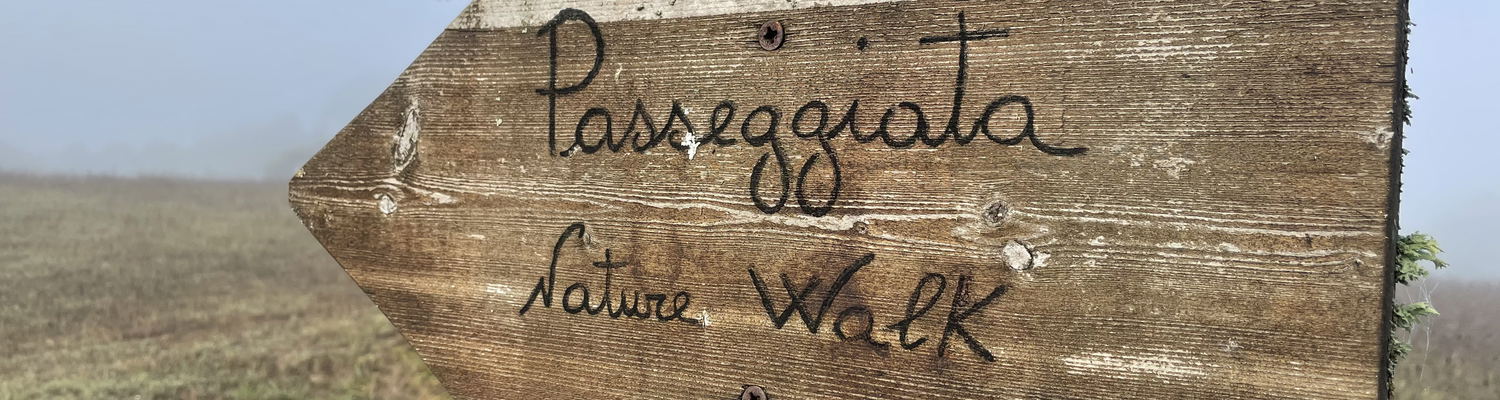 Passeggiata
Nature Walk